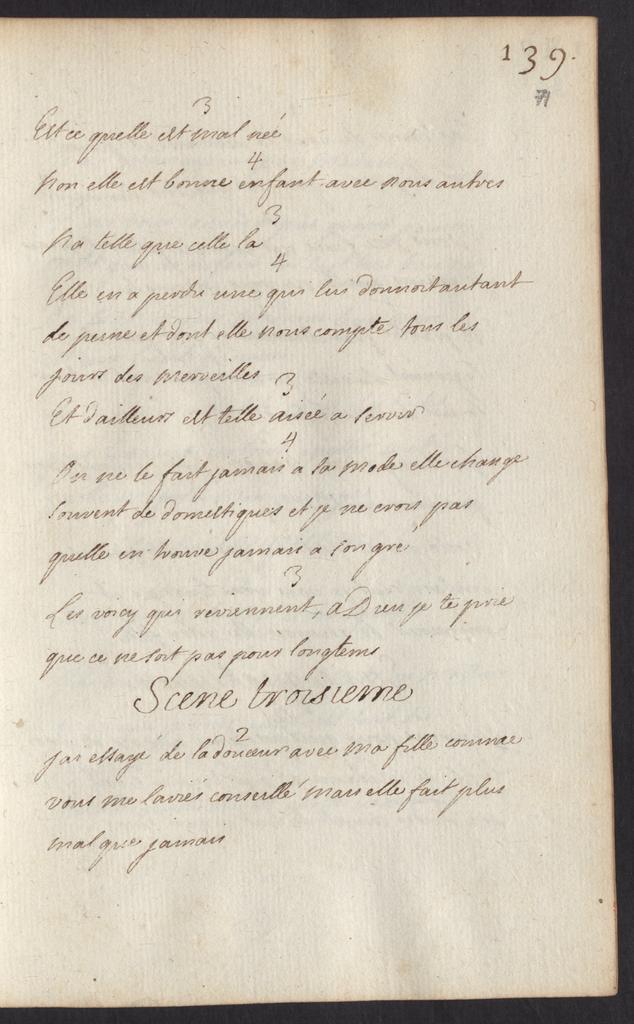 139.
71
3
Est ce quelle est mal neé
4
Non elle est bonne enfant avec nous autres
3
Na telle que celle la
4
Elle en a perdu une qui luy donnoit autant
de peine et dont elle nous compte tous les
jours des merveilles
3
Et dailleurs est telle aiseé a servir
4
On ne le fait jamais a sa mode elle change
souvent de domestiques et je ne crois pas
quelle en trouve jamais a son gré
3
Les voicy qui reviennent, a Dieu je te prie
que ce ne soit pas pour longtems
Scene troisieme
2
jai essayé de la douceur avec ma fille comme
vous me laviés conseillé mais elle fait plus
mal que jamais